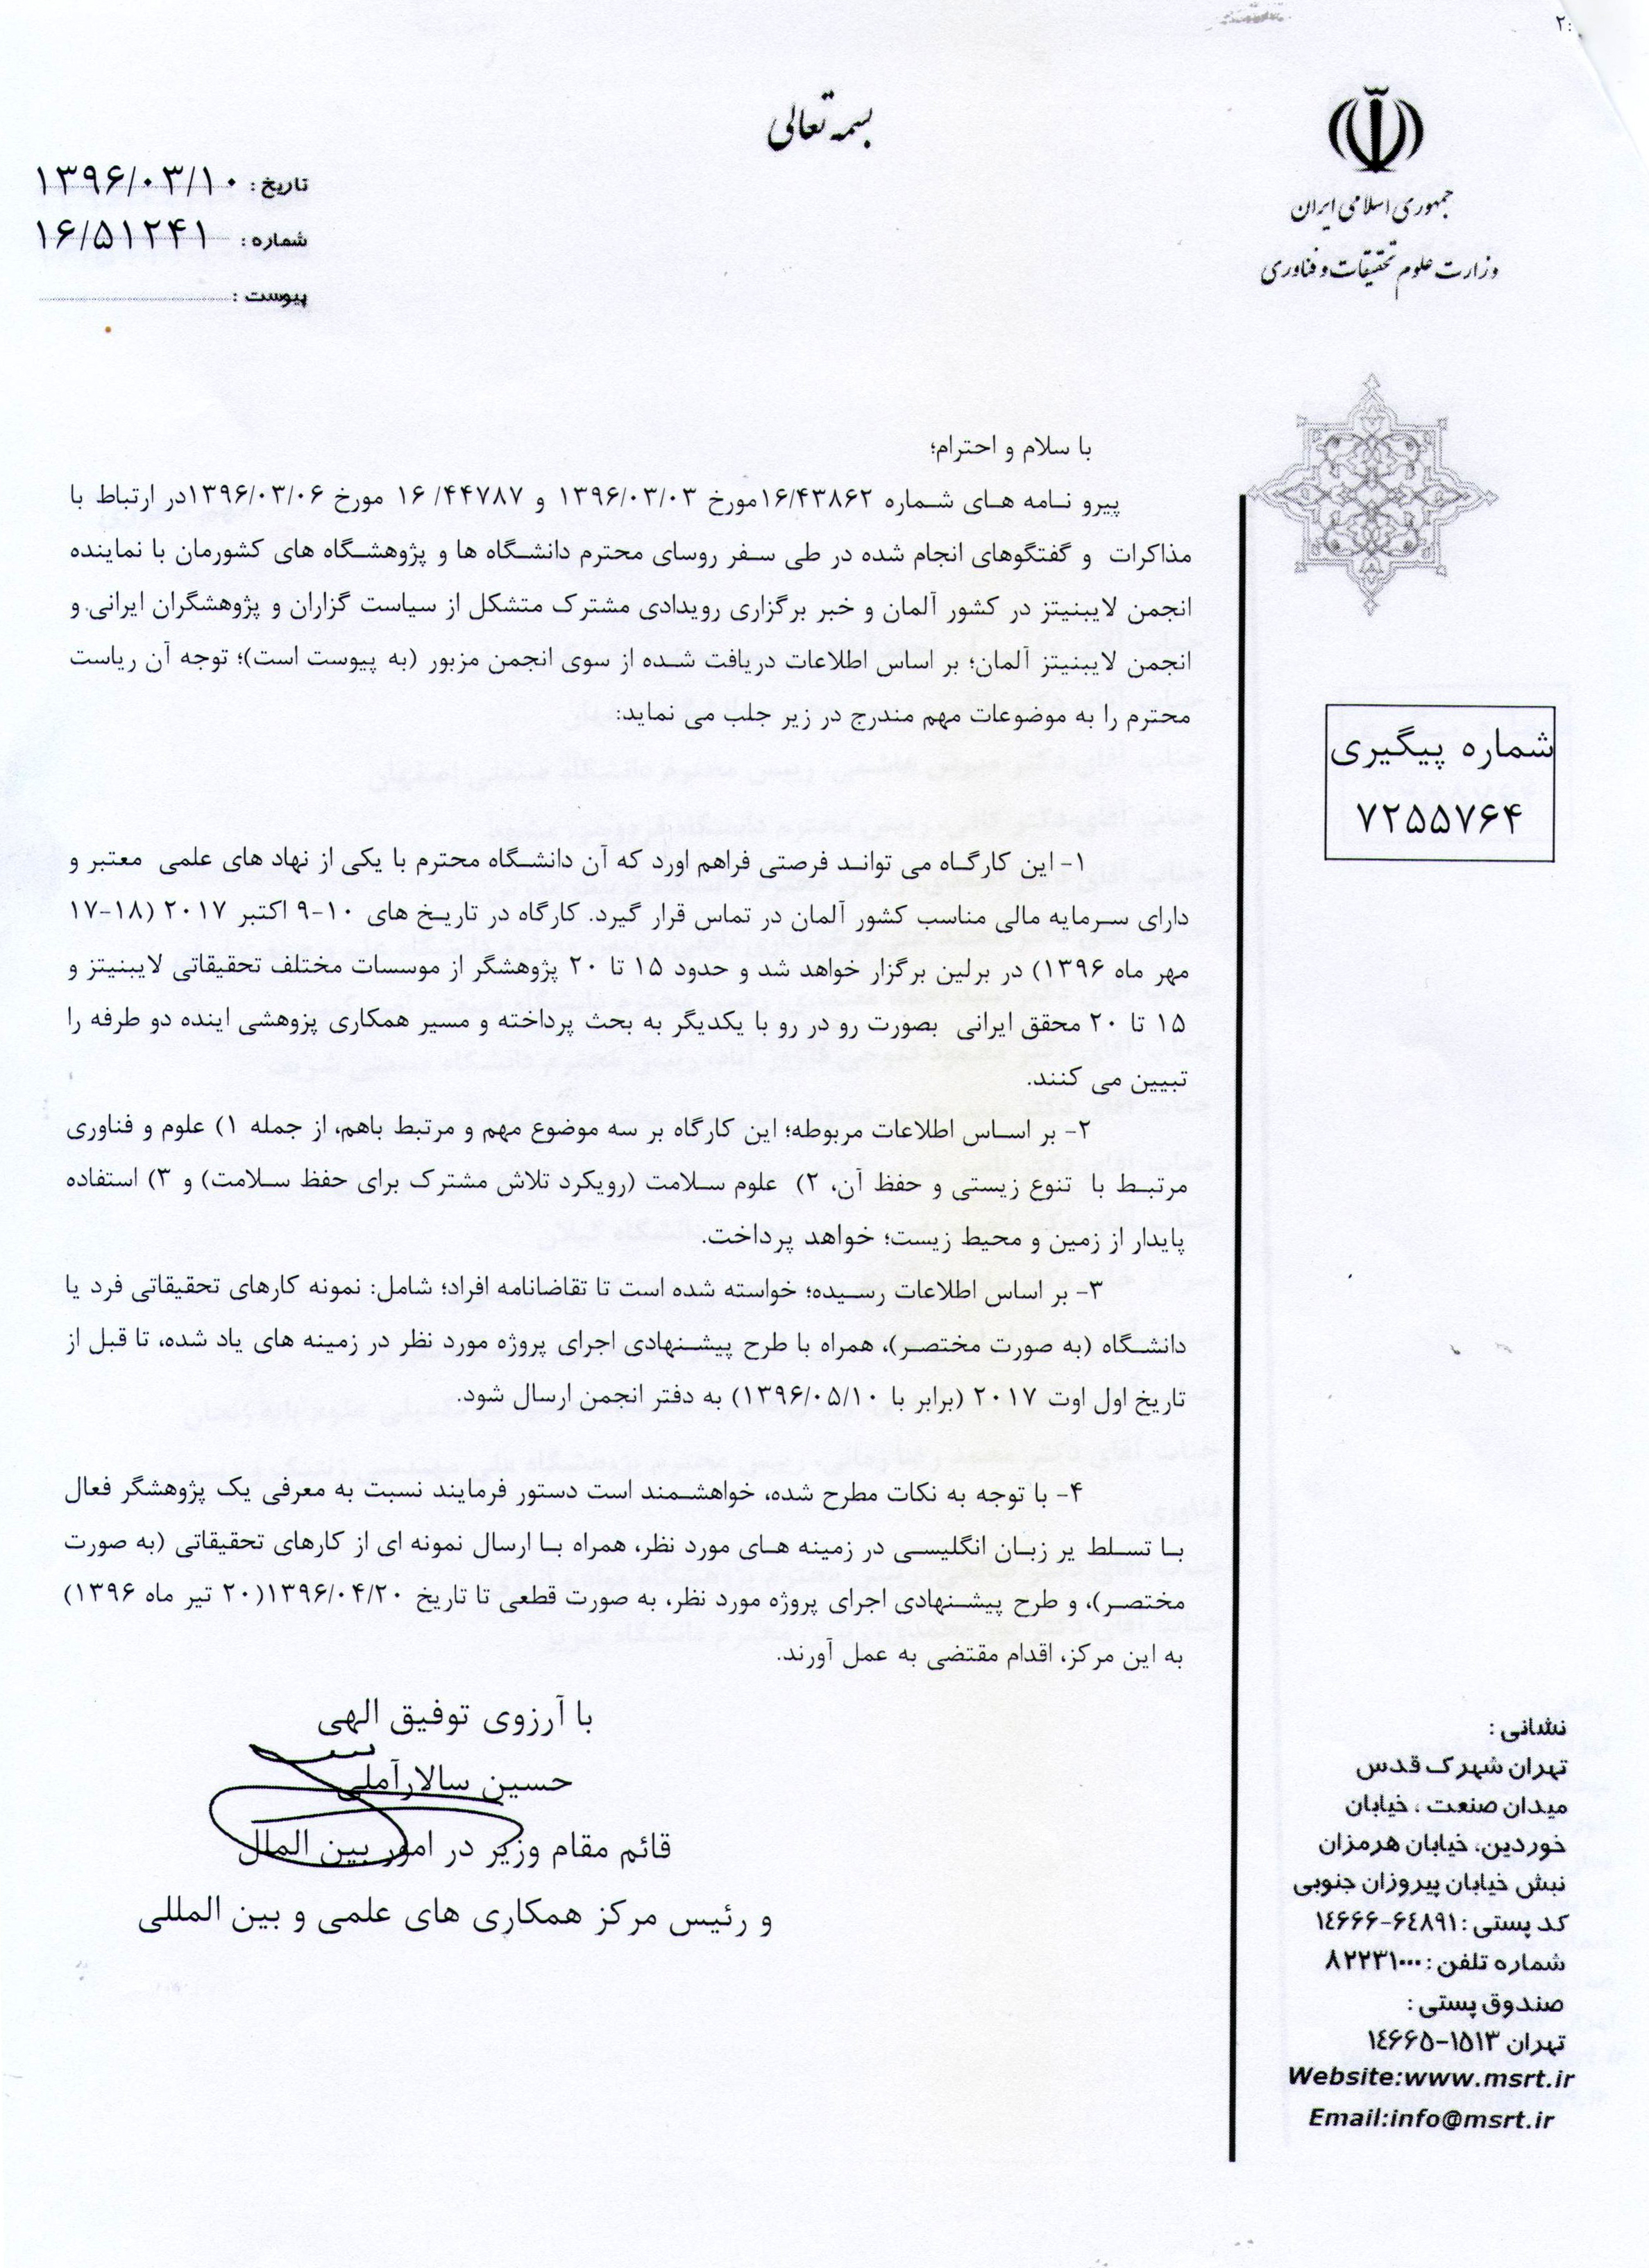 ۲:
بسمه تعالی
جمهوری اسلامی ایران
وزارت علوم تحقیقات و فناوری
تاریخ : ۱۳۹۶/۰۳/۱۰
شماره : ۱۶/۵۱۲۴۱
پیوست :
با سلام و احترام؛
پیرو نامه های شماره ۱۶/۴۳۸۶۲مورخ ۱۳۹۶/۰۳/۰۳ و ۴۴۷۸۷/ ۱۶ مورخ ۱۳۹۶/۰۳/۰۶در ارتباط با
مذاکرات و گفتگوهای انجام شده در طی سفر روسای محترم دانشگاه ها و پژوهشگاه های کشورمان با نماینده
انجمن لایبنیتز در کشور آلمان و خبر برگزاری رویدادی مشترک متشکل از سیاست گزاران و پژوهشگران ایرانی و
انجمن لایبنیتز آلمان؛ بر اساس اطلاعات دریافت شده از سوی انجمن مزبور (به پیوست است)؛ توجه آن ریاست
محترم را به موضوعات مهم مندرج در زیر جلب می نماید:
۱- این کارگاه می تواند فرصتی فراهم اورد که آن دانشگاه محترم با یکی از نهاد های علمی معتبر و
دارای سرمایه مالی مناسب کشور آلمان در تماس قرار گیرد. کارگاه در تاریخ های ۱۰-۹ اکتبر ۲۰۱۷ (۱۸-۱۷
مهر ماه ۱۳۹۶) در برلین برگزار خواهد شد و حدود ۱۵ تا ۲۰ پژوهشگر از موسسات مختلف تحقیقاتی لایبنیتز و
۱۵ تا ۲۰ محقق ایرانی بصورت رو در رو با یکدیگر به بحث پرداخته و مسیر همکاری پزوهشی اینده دو طرفه را
تبیین می کنند.
۲- بر اساس اطلاعات مربوطه؛ این کارگاه بر سه موضوع مهم و مرتبط باهم، از جمله ۱) علوم و فناوری
مرتبط با تنوع زیستی و حفظ آن، ۲) علوم سلامت (رویکرد تلاش مشترک برای حفظ سلامت) و ۳) استفاده
پایدار از زمین و محیط زیست؛ خواهد پرداخت.
۳- بر اساس اطلاعات رسیده؛ خواسته شده است تا تقاضانامه افراد؛ شامل: نمونه کارهای تحقیقاتی فرد یا
دانشگاه (به صورت مختصر)، همراه با طرح پیشنهادی اجرای پروژه مورد نظر در زمینه های یاد شده، تا قبل از
تاریخ اول اوت ۲۰۱۷ (برابر با ۱۳۹۶/۰۵/۱۰) به دفتر انجمن ارسال شود.
۴- با توجه به نکات مطرح شده، خواهشمند است دستور فرمایند نسبت به معرفی یک پژوهشگر فعال
با تسلط یر زبان انگلیسی در زمینه های مورد نظر، همراه با ارسال نمونه ای از کارهای تحقیقاتی (به صورت
مختصر)، و طرح پیشنهادی اجرای پروژه مورد نظر، به صورت قطعی تا تاریخ ۱۳۹۶/۰۴/۲۰(۲۰ تیر ماه ۱۳۹۶)
به این مرکز، اقدام مقتضی به عمل آورند.
با آرزوی توفیق الهی
حسین سالارآملی
قائم مقام وزیر در امور بین الملل
و رئیس مرکز همکاری های علمی و بین المللی
شماره پیگیری
۷۲۵۵۷۶۴
نشانی :
تهران شهرک قدس
میدان صنعت ، خیابان
خوردین، خیابان هرمزان
نبش خیابان پیروزان جنوبی
کد پستی : ۶٤۸۹۱-۱٤۶۶۶
شماره تلفن : ۸۲۲۳۱۰۰۰
صندوق پستی :
تهران ۱۵۱۳-۱٤۶۶۵
Website:www.msrt.ir
Email:info@msrt.ir